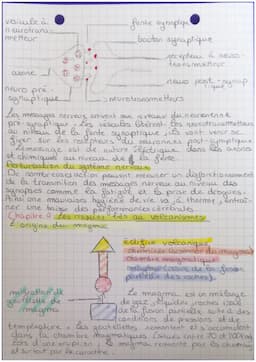 vésicule à
neurotrans-
metteur
fente synaptique
bouton synaptique
axone
récepteur à neuro-
transmetteur
neuro post-synap-
tique
neuro pré-
synaptique
neurotransmetteurs
Les messages nerveux arrivent au niveau du neurone
pré-synaptique. Les vésicules libèrent les neurotransmetteurs
au niveau de la fente synaptique, ils vont venir se
fixer sur les récepteurs du neurone post-synaptique
Le message est de nature électrique dans les axones
et chimiques au niveau de la fente.
Perturbation du système nerveux
De nombreuses action peuvent mener un disfonctionnement
de la transmition des messages nerveux au niveau des
synapses comme la fatigue et la prise de drogues.
Ainsi une mauvaise hygiène de vie va, à therme, entraî-
ner une baisse des performances cérébrales
Chapitre Les risques liés au volcanismes
L'origine du magma
édifice volcanique
cheminée (remontée du magma)
chambre magmatique
partielle des roches)
magma
Le magma est un mélange
de gaz, liquides, roches
de la fusion partielle, suite à des
conditions de pression et de
température. Les gouttelettes remontent et s'accumulent
dans la chambre magmatique
le magma remonte par la cheminée
et sort par le cratère